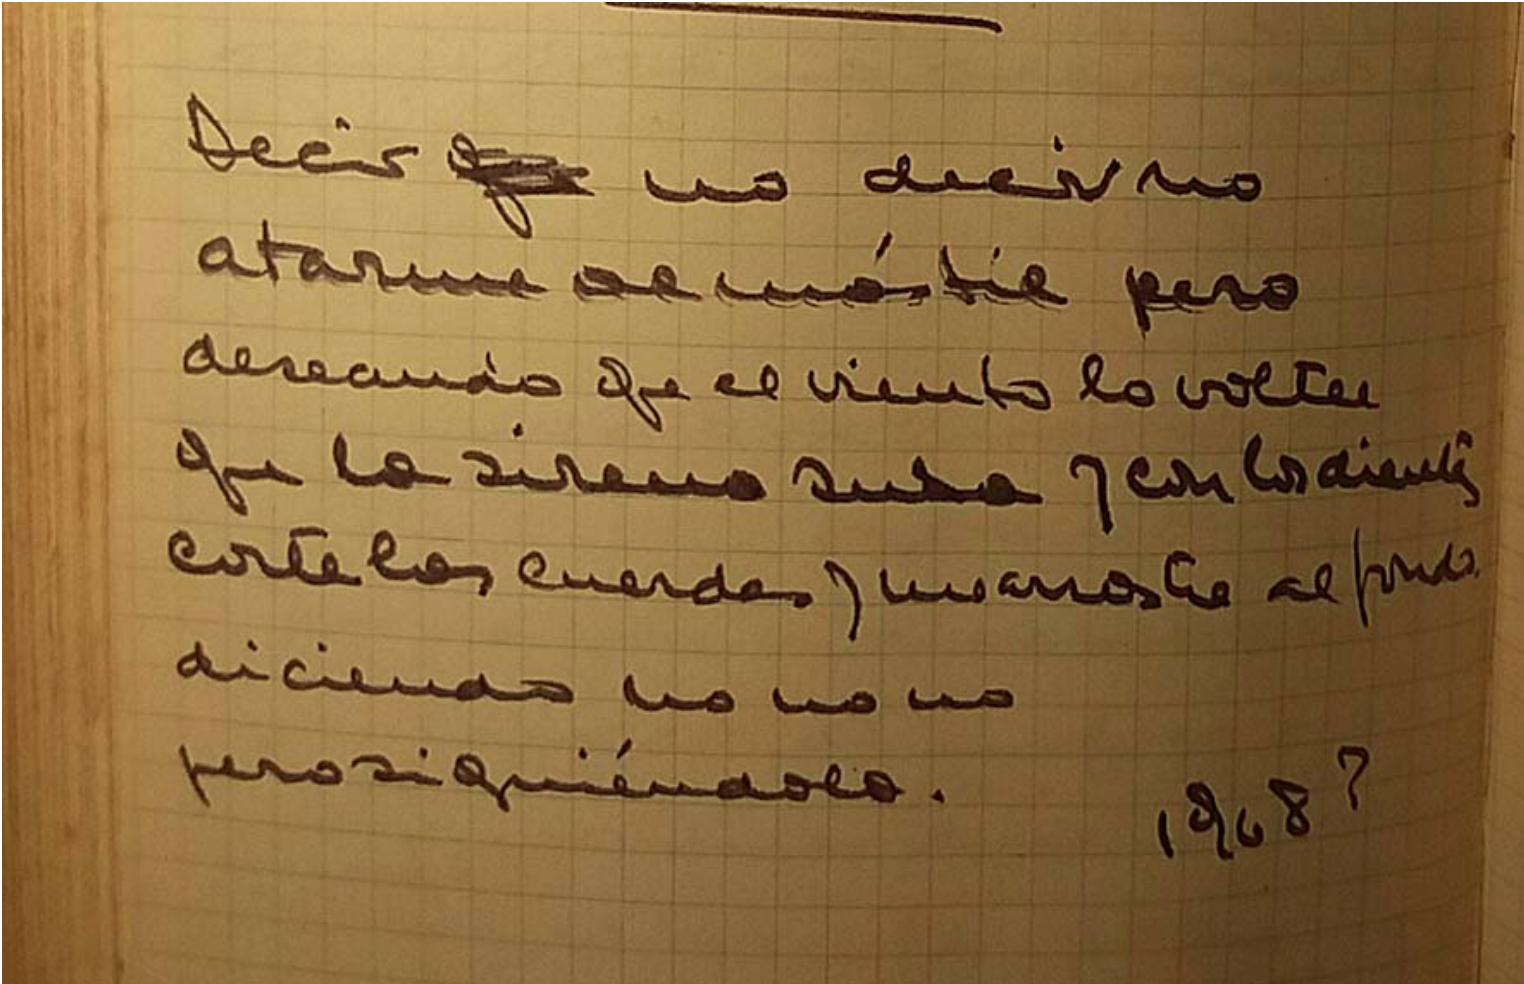 Decir no decir no
atarme al mástil pero
deseando que el viento lo voltee
que la sirena suba y con los dientes
corte las cuerdas y me arrastre al fondo
diciendo no no no
pero siguiéndola.
1968?